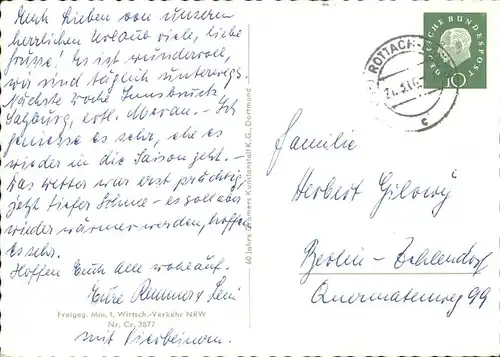 Euch Lieben von unserm
herrlichen Urlaub viele, liebe
Grüsse! Es ist wundervoll,
wir sind täglich unterwegs.
Nächste Woche Innsbruck,
Salzburg, evtl. Meran. - Ich
geniesse es sehr, ehe es
wieder in die Saison geht. -
Das Wetter war erst prächtig
jetzt tiefer Schnee - es soll aber
wieder wärmer werden, hoffen
Es sehr.
Hoffen Euch alle wohlauf.
Eure
Freigeg. Min. f. Wirtsch.-Verkehr NRW
Nr. Cr. 3877
mit Vierbeinern.
60 Jahre Cramers Kunstanstalt K.G., Dortmund
ROTTACH-
c
DEUTSCHE BUNDESPOST
10
Familie
Herbert
Berlin-Zehlendorf
Quermatenweg 99